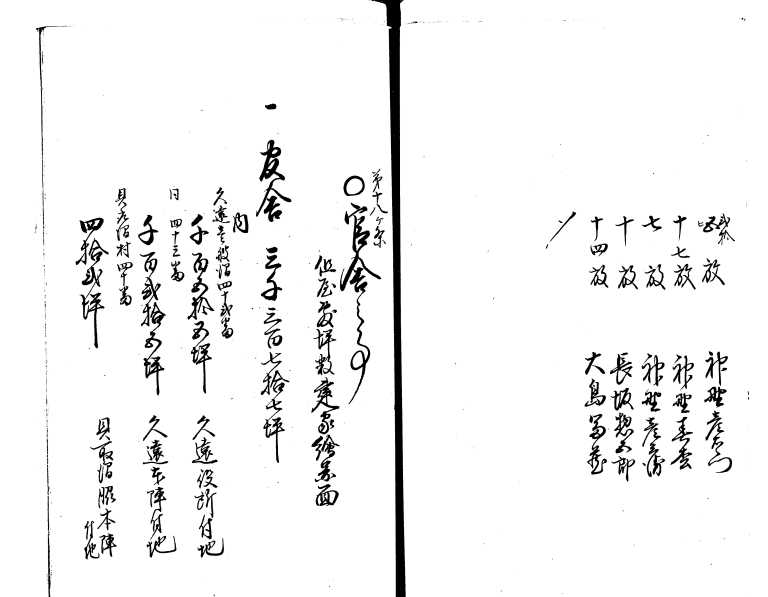 放
神野彦右衛門
十七放
神野喜会
七放
神野彦兵衛
十放
長坂惣五郎
十四放
大島富蔵
第十八ヶ条
〇官舎之事
但屋敷坪数建家絵図面
一 官舎 三千三百七拾七坪
内
久遠 四十弐番
千百五拾五坪 久遠役所付地
同 四十三番
千百弐拾五坪 久遠本陣付地
貝取澗村四十番
四拾弐坪 貝取澗脇本陣
付地